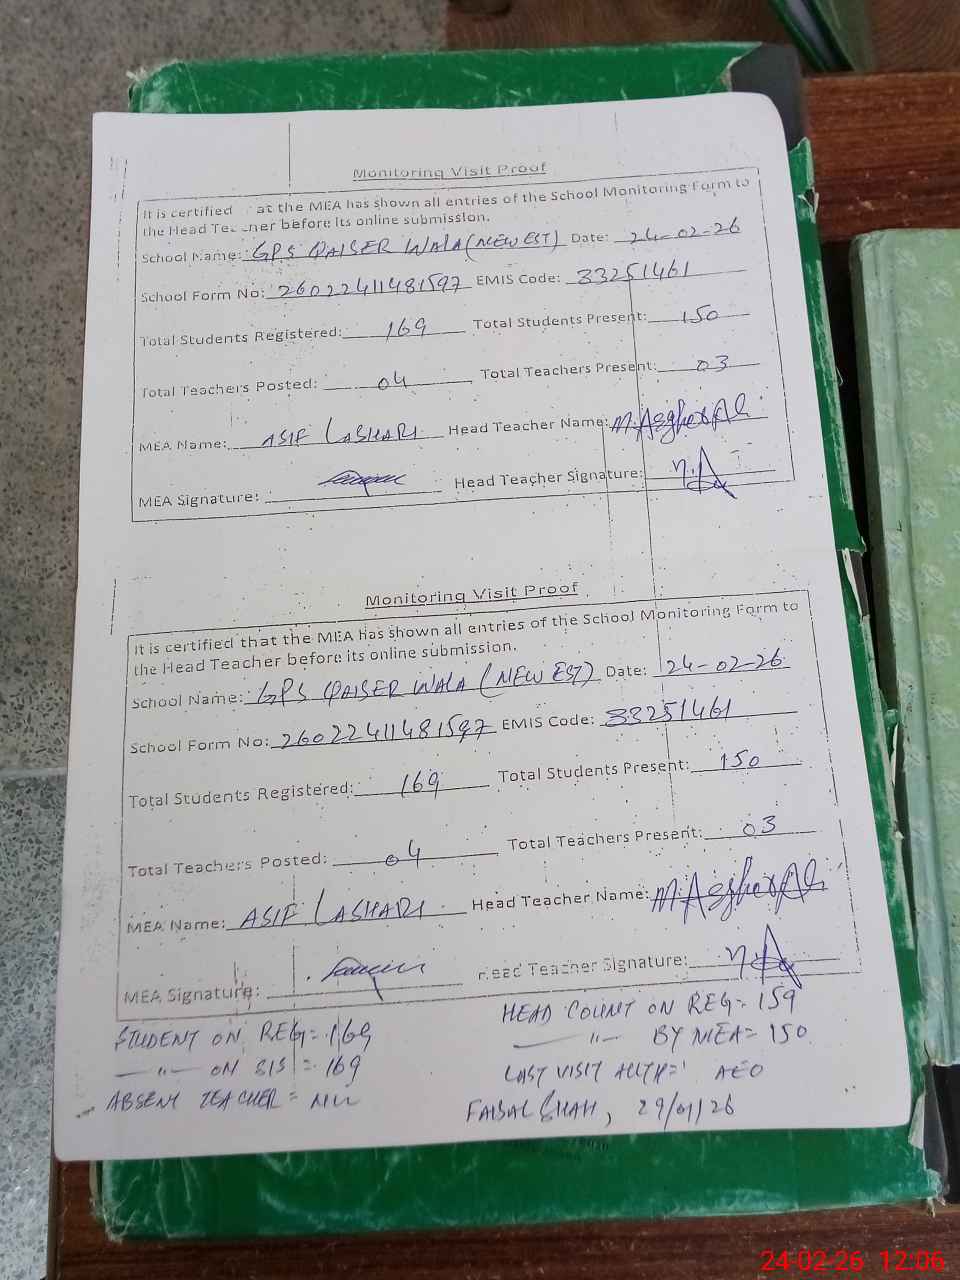 Monitoring Visit Proof
It is certified at the MEA has shown all entries of the School Monitoring Form to
the Head Teacher before its online submission.
School Name: GPS QAISER WALA (NEW EST) Date: 24-02-26
School Form No: 26022411481597 EMIS Code: 33251461
Total Students Registered: 169 Total Students Present: 150
Total Teachers Posted: 04 Total Teachers Present: 03
MEA Name: ASIF LASHARI Head Teacher Name: M. Asghar Ali
MEA Signature: Head Teacher Signature:
Monitoring Visit Proof
It is certified that the MEA has shown all entries of the School Monitoring Form to
the Head Teacher before its online submission.
School Name: GPS QAISER WALA (NEW EST) Date: 24-02-26
School Form No: 26022411481597 EMIS Code: 33251461
Total Students Registered: 169 Total Students Present: 150
Total Teachers Posted: 04 Total Teachers Present: 03
MEA Name: ASIF LASHARI Head Teacher Name: M. Asghar Ali
MEA Signature: Head Teacher Signature:
STUDENT ON REG = 169 HEAD COUNT ON REG = 159
—"— ON SIS = 169 —"— BY MEA = 150
ABSENT TEACHER = NIL LAST VISIT AEO
FAISAL SHAH, 29/01/26
24-02-26 12:06